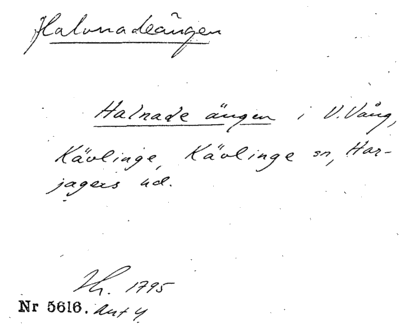 Halvnadeängen
Halnade ängen i V. Vång,
Kävlinge, Kävlinge sn, Har-
jagers hd.
Hr. 1795
Nr 5616. Avt 4